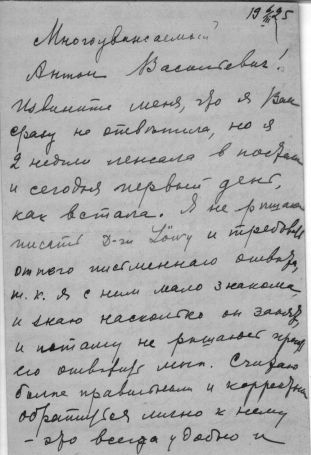 19 25
Многоуважаемый
Антон Васильевич!
Извините меня, что я Вам
сразу не ответила, но я
2 недели лежала в постели
и сегодня первый день,
как встала. Я не решаюсь
писать D-ru Löwy и требовать
от него письменнаго ответа,
т. к. я с ним мало знакома
и знаю насколько он занят
и потому не решаюсь
его мне. Считаю
более правильным и корректным
обратиться лично к нему
– это всегда удобно и